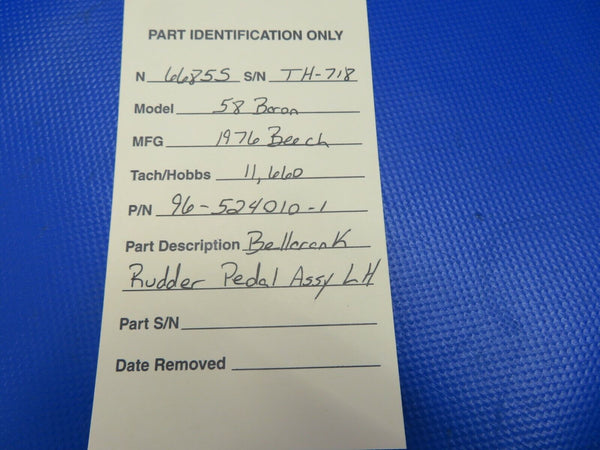 PART IDENTIFICATION ONLY
N 6685S S/N TH-718
Model 58 Baron
MFG 1976 Beech
Tach/Hobbs 11,660
P/N 96-524010-1
Part Description Bellcrank
Rudder Pedal Assy LH
Part S/N
Date Removed